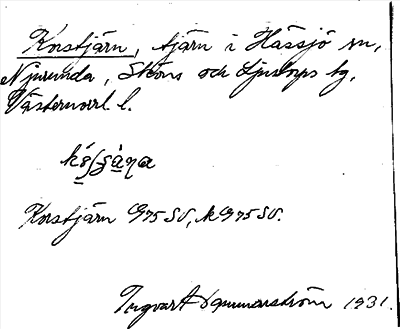 Korstjärn, tjärn i Hässjö sn,
Njurunda, Sköns och Ljustorps tg,
Västernorrl. l.
Korstjärn G975SV, kG975SV.
Ingvart Gammarström 1931.